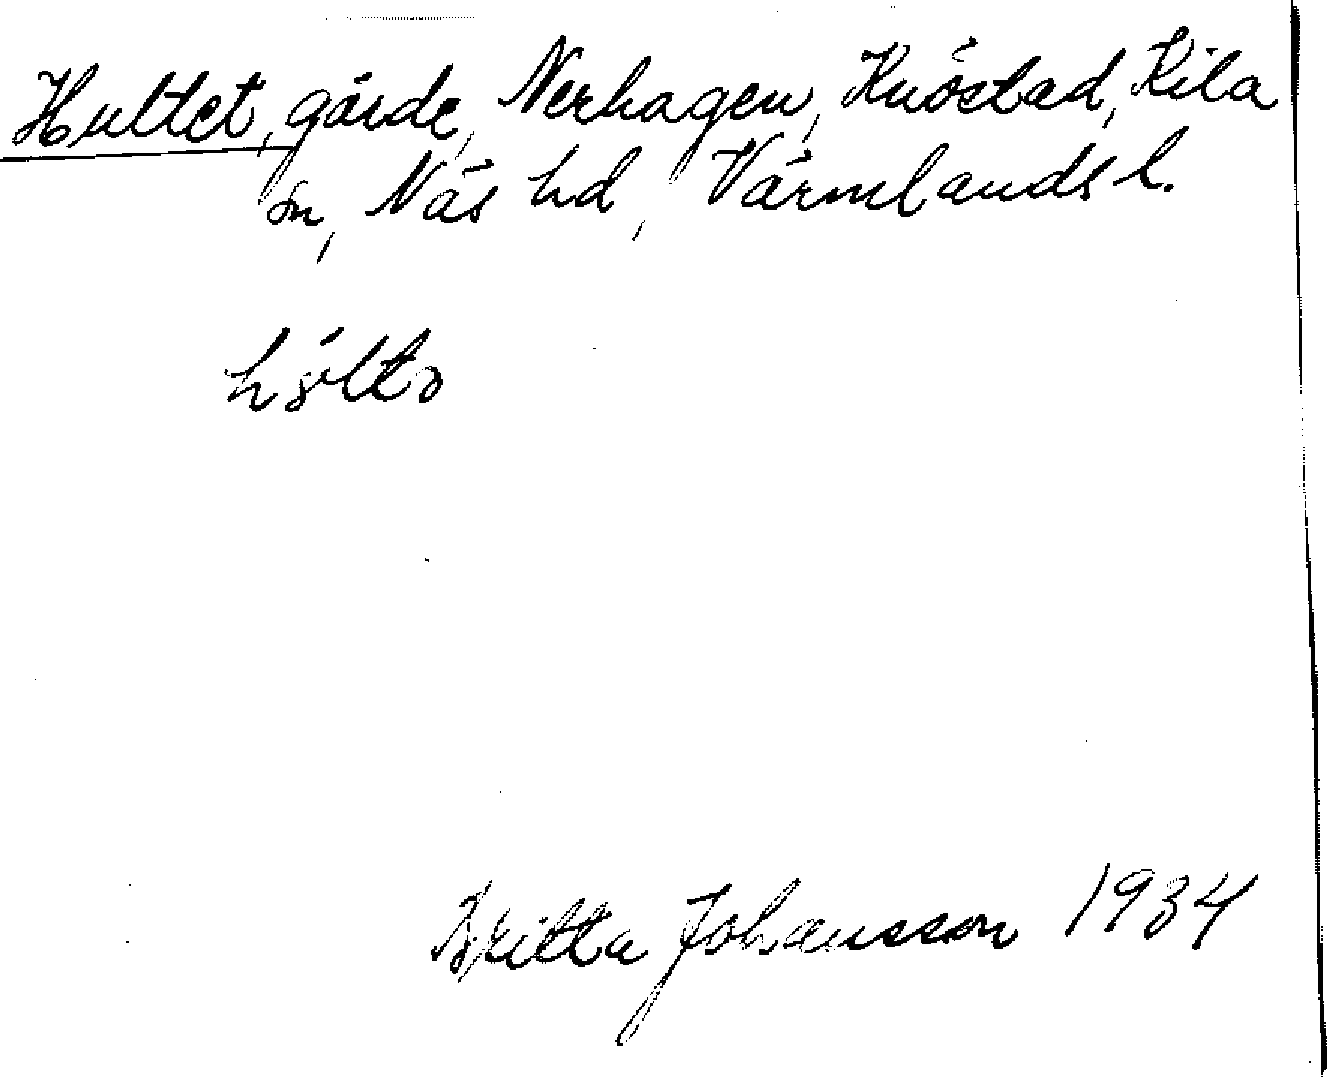 Hultet, gärde, Nerhagen, Knöstad, Kila
sn, Näs hd, Värmlands l.
Britta Johansson 1934